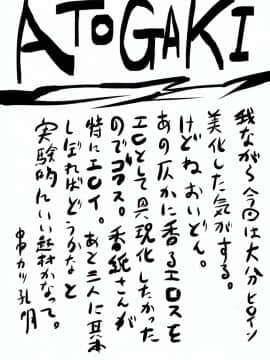 ATOGAKI
我ながら今回は大分ヒロイン
美化した気がする。
けどねおいどん。
あの仄かに香るエロスを
エロとして具現化したかった
のでゴワス。香紙さんが
特にエロイ。あと三人に基本
しぼればどうかなと
実験的にいい題材かなって。